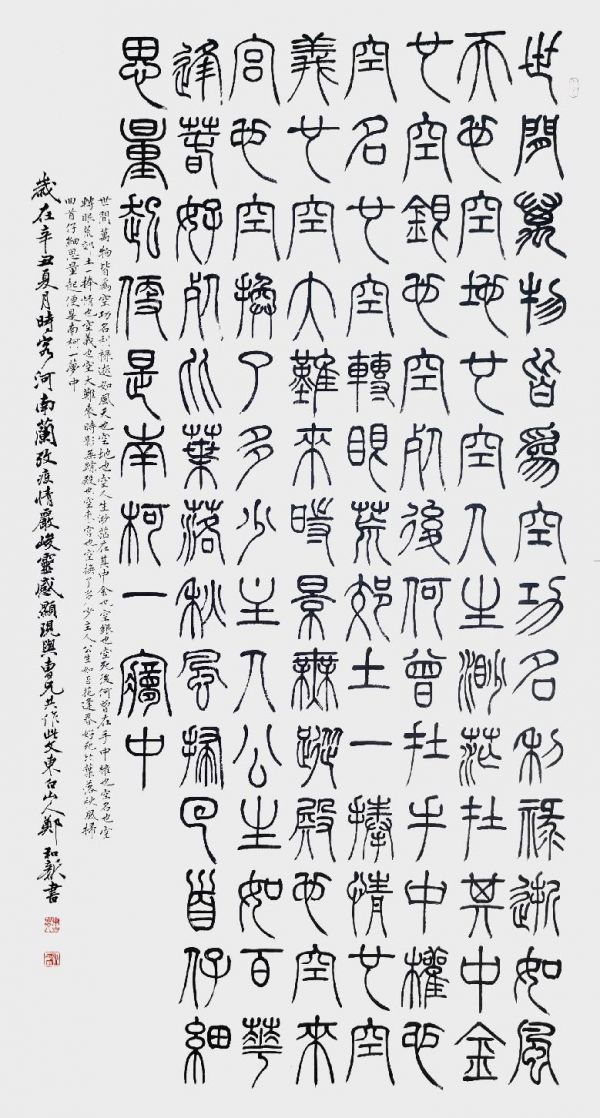 世間萬物皆爲空功名利祿逝如風
天也空地也空人生渺茫在其中金
也空銀也空死後何曾在手中權也
空名也空轉眼荒郊土一捧情也空
義也空大難來時景無蹤殿也空來
宮也空換了多少主人公生如百華
逢春好死比葉落秋風掃回首仔細
思量起便是南柯一夢中
世間萬物皆為空功名利祿逝如風天也空地也空人生渺茫在其中金也空銀也空死後何曾在手中權也空名也空
轉眼荒郊土一捧情也空義也空大難來時影無蹤殿也空來宮也空換了多少主人公生如百花逢春好死比葉落秋風掃
回首仔細思量起便是南柯一夢中
歲在辛丑夏月時客河南蘭考疫情嚴峻靈感顯現與曹兄共作此文東石山人鄭和書